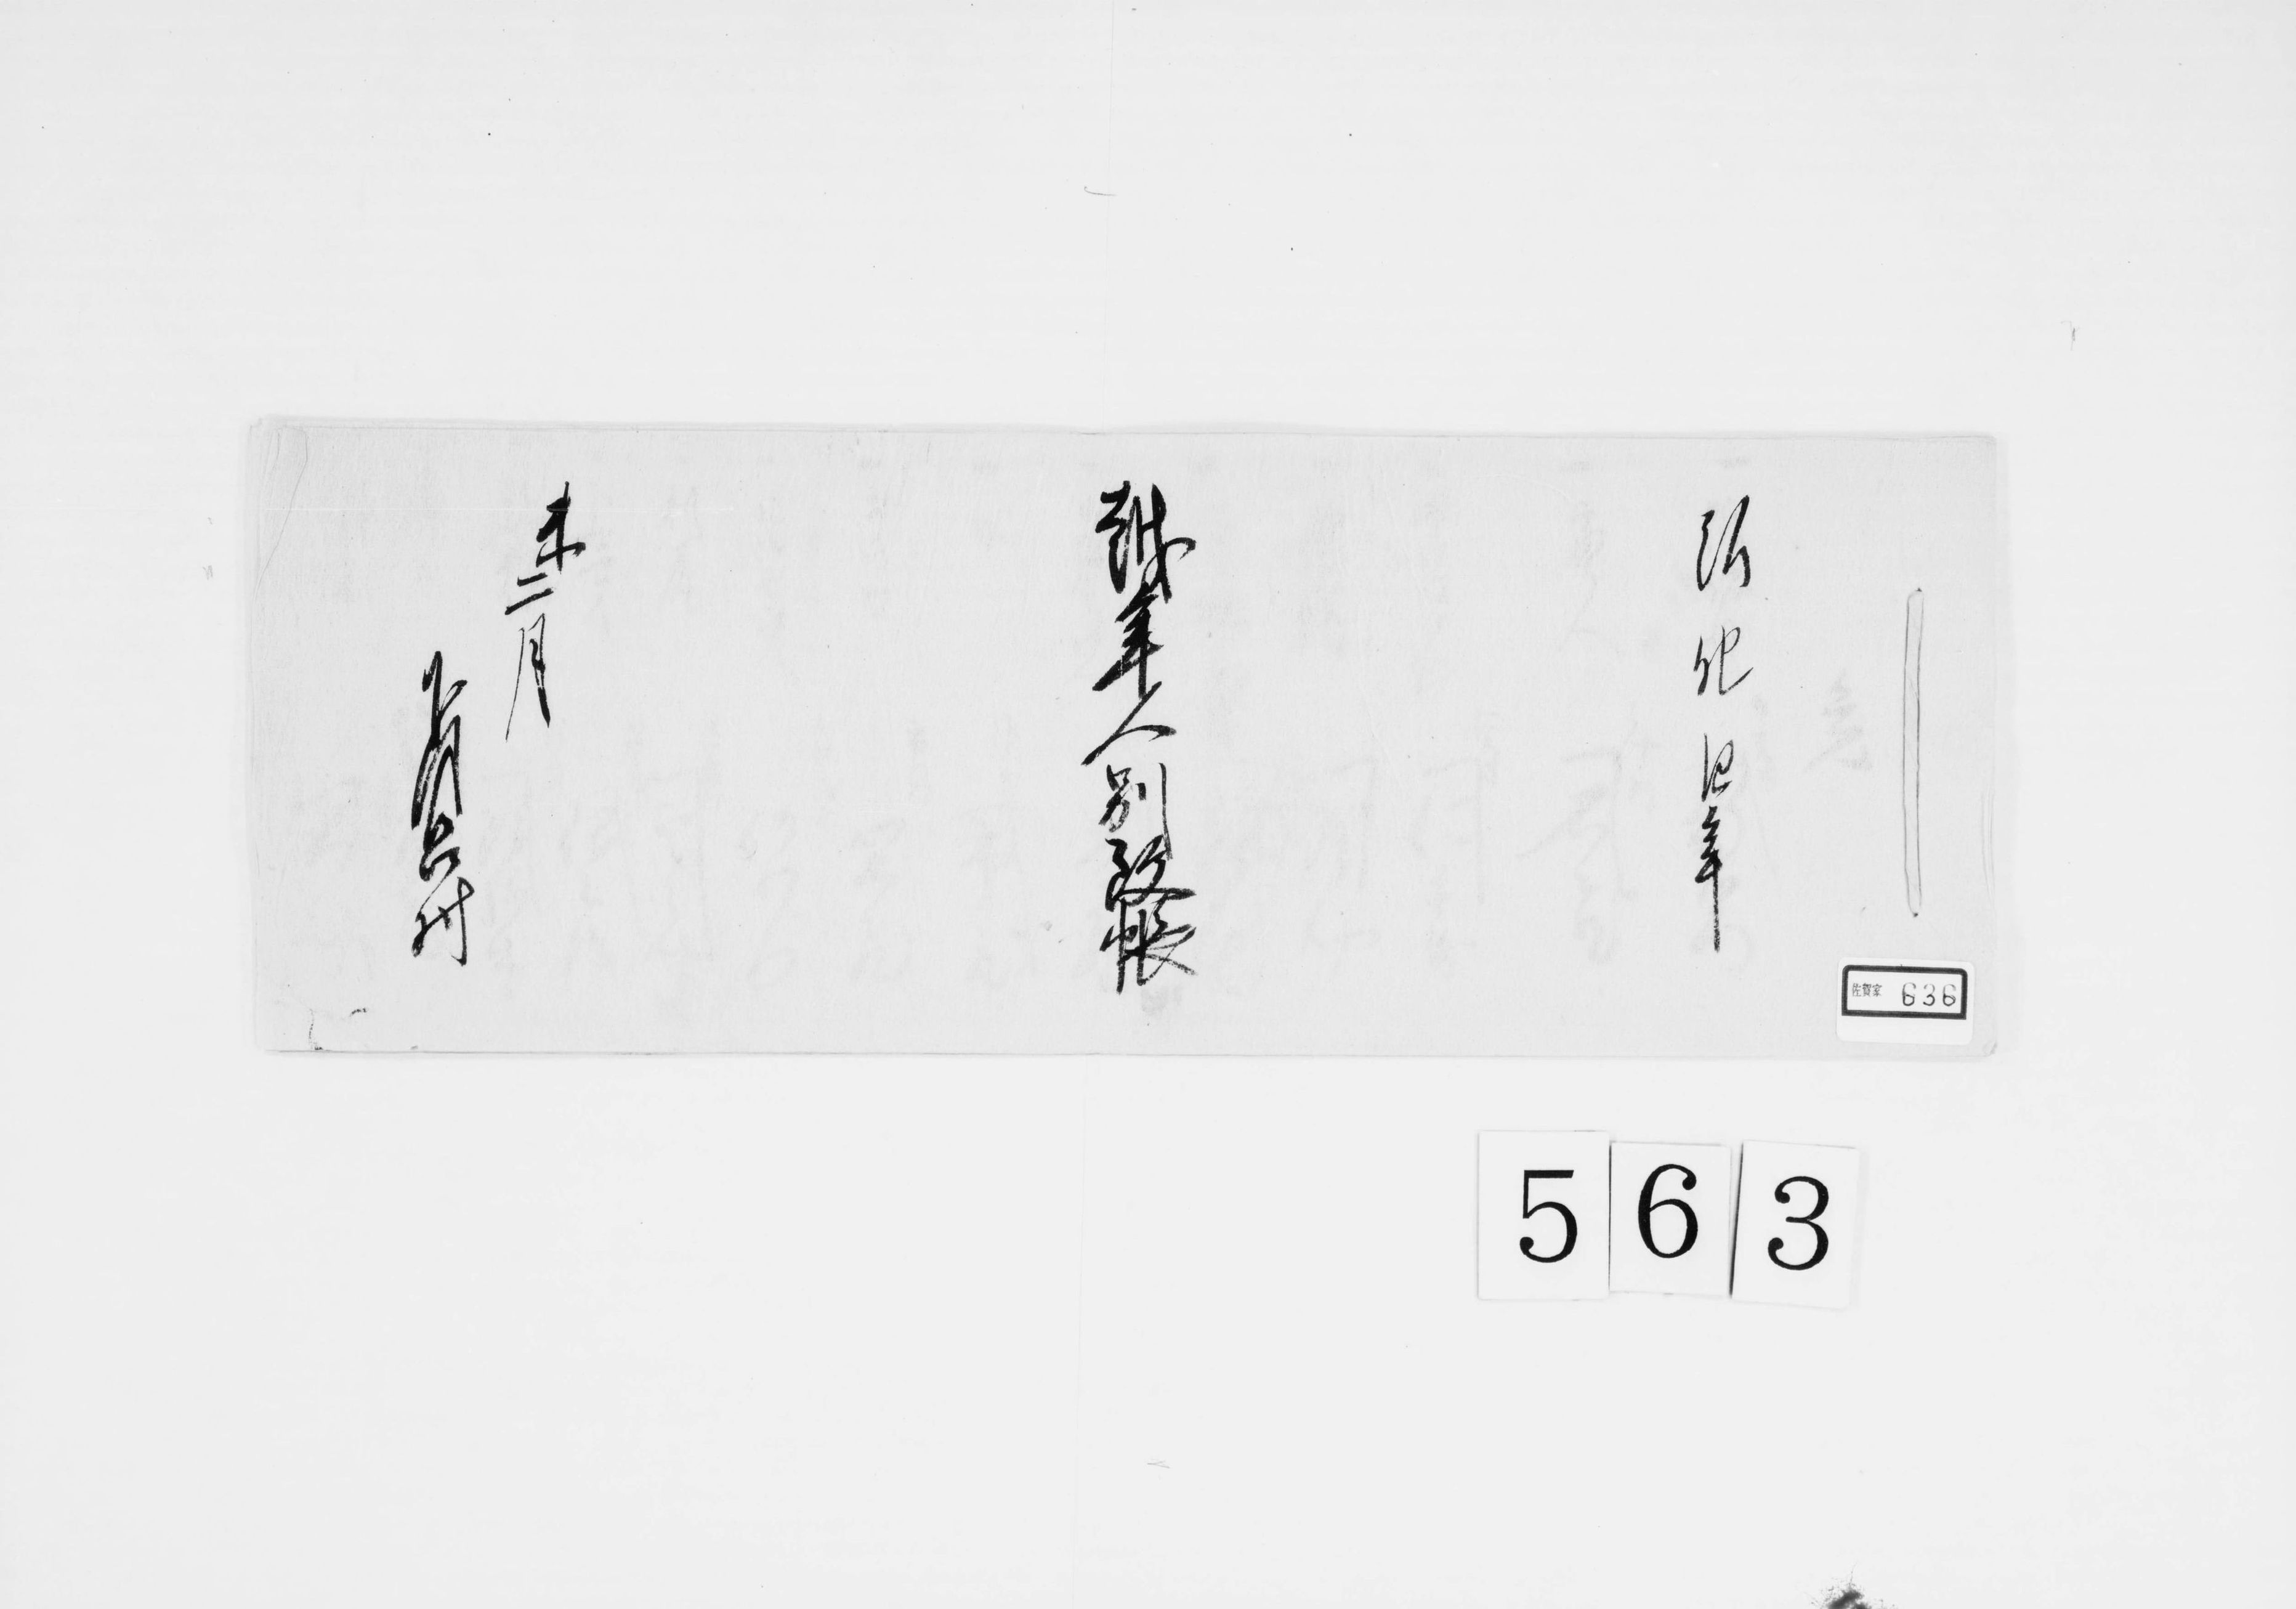 弘化四年
越年人別改帳
未二月
佐賀家 636
563